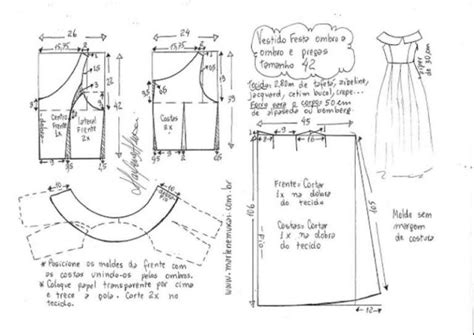 26
15,75
2
24
15,75
2
Vestido Festa ombro a
ombro e pregas
Tamanho 42
Tecido: 2,80m de tafetá, zibeline,
jacquard, cetim bucol, crepe...
Forro para o corpo: 50 cm
de alpasseda ou bemberg
Zíper
de 30 cm
42
39
Centro
Frente
1x
Lateral
Frente
2x
Costas
2x
45
9
16
10
10
Frente: Cortar
1x na dobra
do tecido
Costas: Cortar
1x na dobra
do tecido
106
Fio
107
12
Molde sem
margem
de costura
www.marlenemukai.com.br
* Posicione os moldes da frente com
as costas unindo-os pelos ombros.
* Coloque papel transparente por cima
e trace a gola. Corte 2x no
tecido.